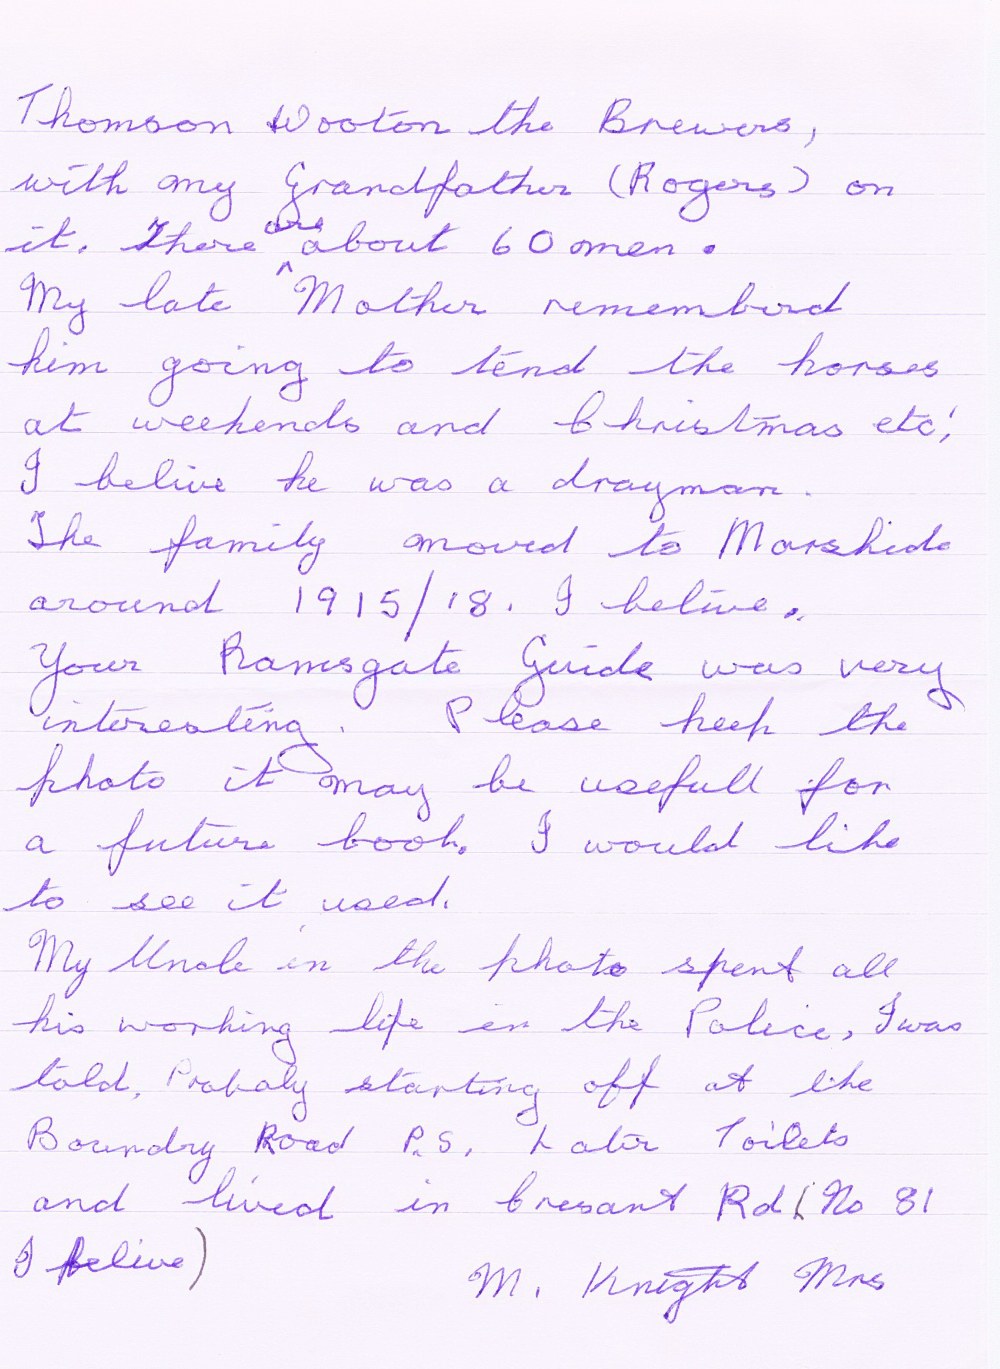 Thomson Wooton the Brewers,
with my Grandfather (Rogers) on
it. There are about 60 men.
My late Mother rememberd
him going to tend the horses
at weekends and Christmas etc!
I belive he was a drayman.
The family moved to Marshide
around 1915/18. I belive.
Your Ramsgate Guide was very
interesting. Please keep the
photo it may be usefull for
a future book. I would like
to see it used.
My Uncle in the photo spent all
his working life in the Police, I was
told, Probaly starting off at the
Boundry Road P.S, Later Toilets
and lived in Cresant Rd (No 81
I belive)
M. Knight Mrs